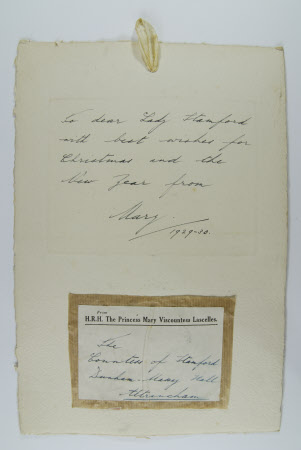 To dear Lady Stamford
with best wishes for
Christmas and the
New Year from
Mary.
1929-30.
From
H.R.H. The Princess Mary Viscountess Lascelles.
The
Countess of Stamford
Dunham Massey Hall
Altrincham